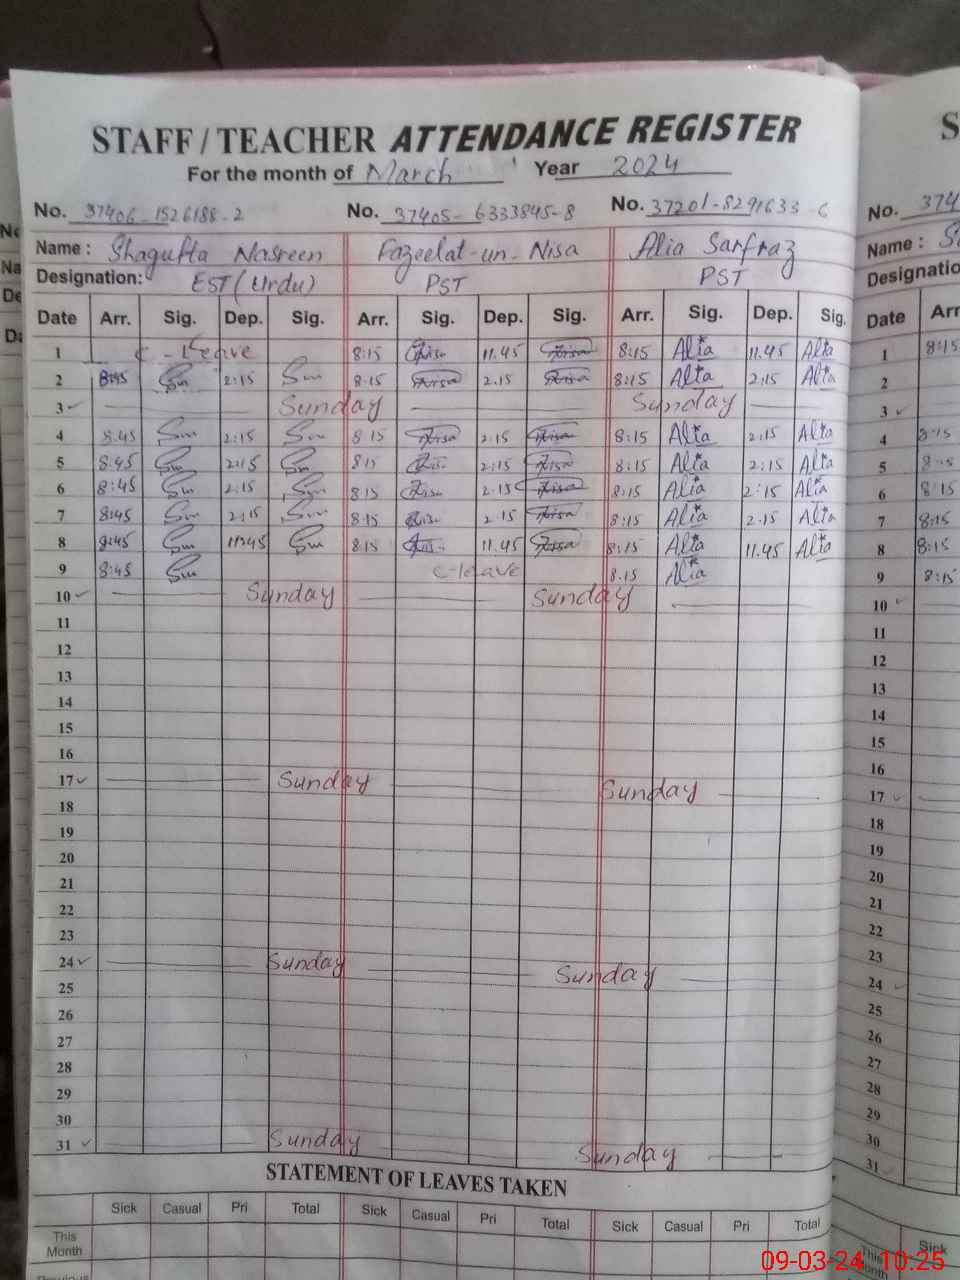 STAFF / TEACHER ATTENDANCE REGISTER
For the month of March Year 2024
No. 37406-1526188-2 No. 37405-6333845-8 No. 37201-8291633-6
Name : Shagufta Nasreen Fazeelat-un-Nisa Alia Sarfraz
Designation: EST (Urdu) PST PST
Date Arr. Sig. Dep. Sig. Arr. Sig. Dep. Sig. Arr. Sig. Dep. Sig.
1 C-Leave 8:15 Nisa 11.45 Nisa 8:15 Alia 11.45 Alia
2 8:45 Sm 2:15 Sm 8:15 Nisa 2.15 Nisa 8:15 Alia 2:15 Alia
3 Sunday Sunday
4 8:45 Sm 2:15 Sm 8 15 Nisa 2.15 Nisa 8:15 Alia 2:15 Alia
5 8:45 Sm 2:15 Sm 8 15 Nisa 2:15 Nisa 8:15 Alia 2:15 Alia
6 8:45 Sm 2:15 Sm 8 15 Nisa 2.15 Nisa 8:15 Alia 2:15 Alia
7 8:45 Sm 2:15 Sm 8.15 Nisa 2.15 Nisa 8:15 Alia 2.15 Alia
8 Sm Sm 8.15 Nisa 11.45 Nisa 8:15 Alia 11.45 Alia
9 8:45 Sm C-leave 8.15 Alia
10 Sunday Sunday
11
12
13
14
15
16
17 Sunday Sunday
18
19
20
21
22
23
24 Sunday Sunday
25
26
27
28
29
30
31 Sunday Sunday
STATEMENT OF LEAVES TAKEN
Sick Casual Pri Total Sick Casual Pri Total Sick Casual Pri Total
This
Month
S
No. 374
Name : S
Designatio
Date Arr
1 8:15
2
3
4 8:15
5 8:15
6 8:15
7 8:15
8 8:15
9 8:15
10
11
12
13
14
15
16
17
18
19
20
21
22
23
24
25
26
27
28
29
30
31
Sick
This
Month
09-03-24 10:25